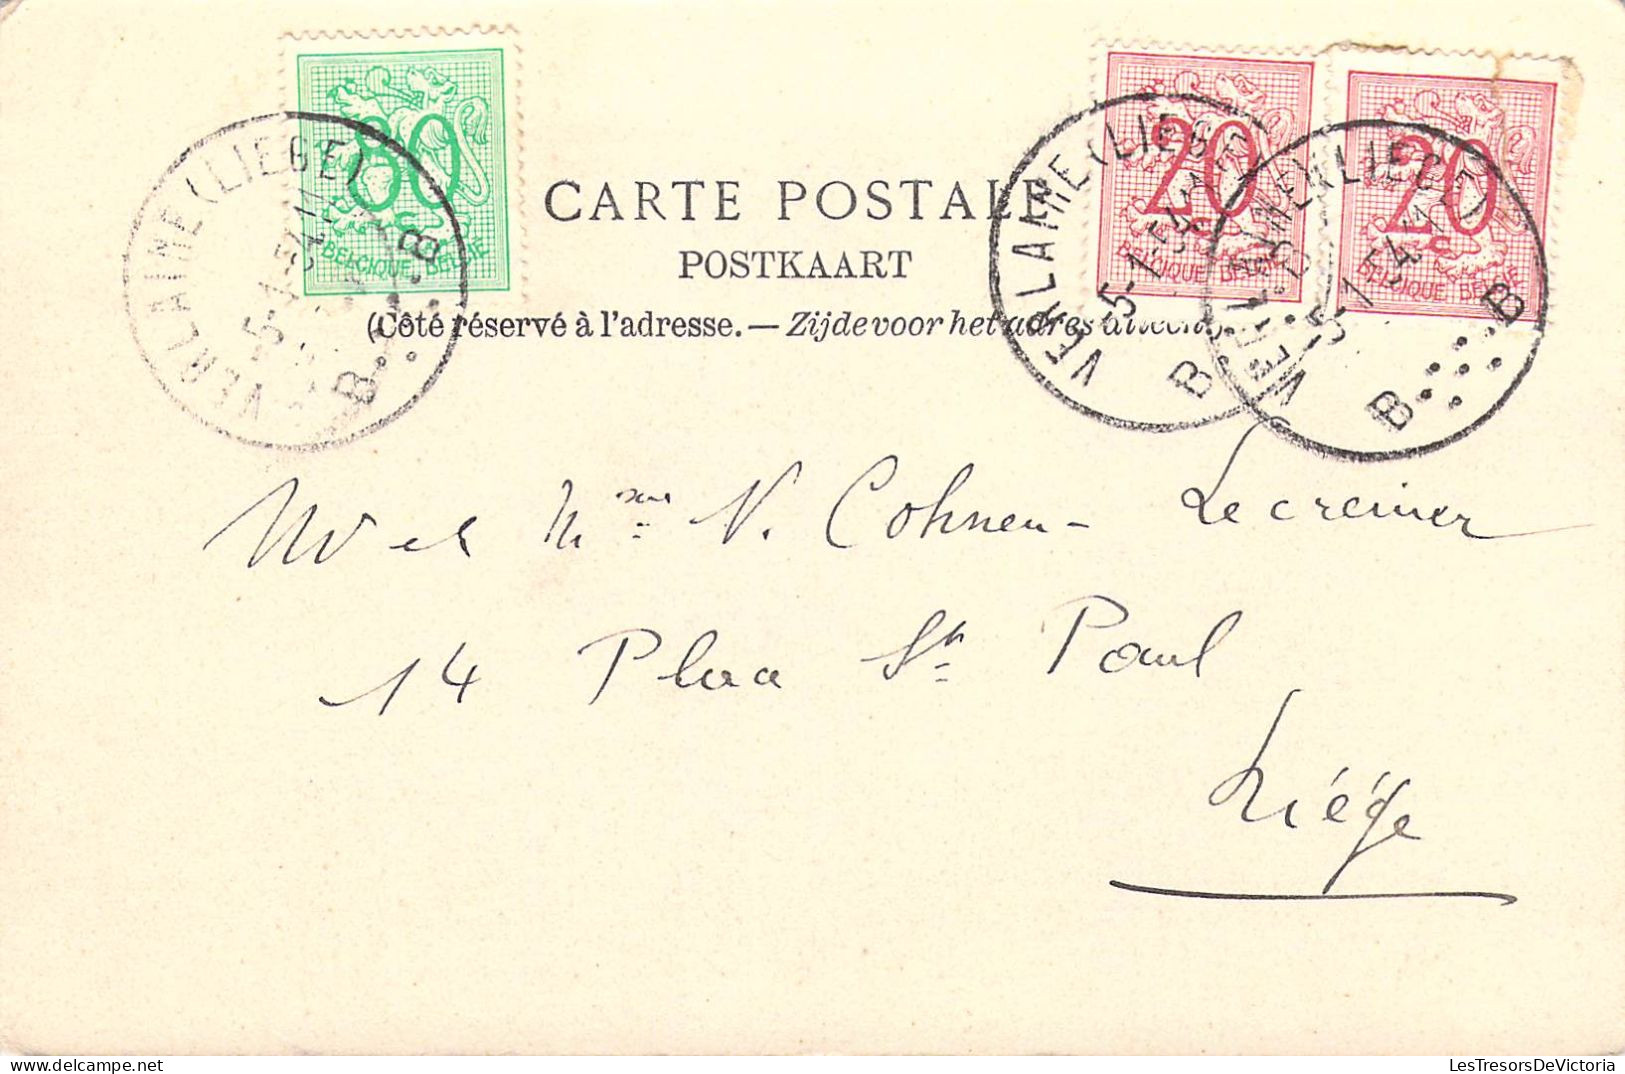 80
BELGIQUE BELGIE
20
c
BELGIQUE BELGIE
20
c
BELGIQUE BELGIE
VERLAINE (LIEGE)
B B
VERLAINE (LIEGE)
5-1
B B
VERLAINE (LIEGE)
5-1
B B
CARTE POSTALE
POSTKAART
(Côté réservé à l'adresse. — Zijde voor het adres
Mr et Mme V. Cohnen - Lecreinier
14 Place St Paul
Liége
LesTresorsDeVictoria